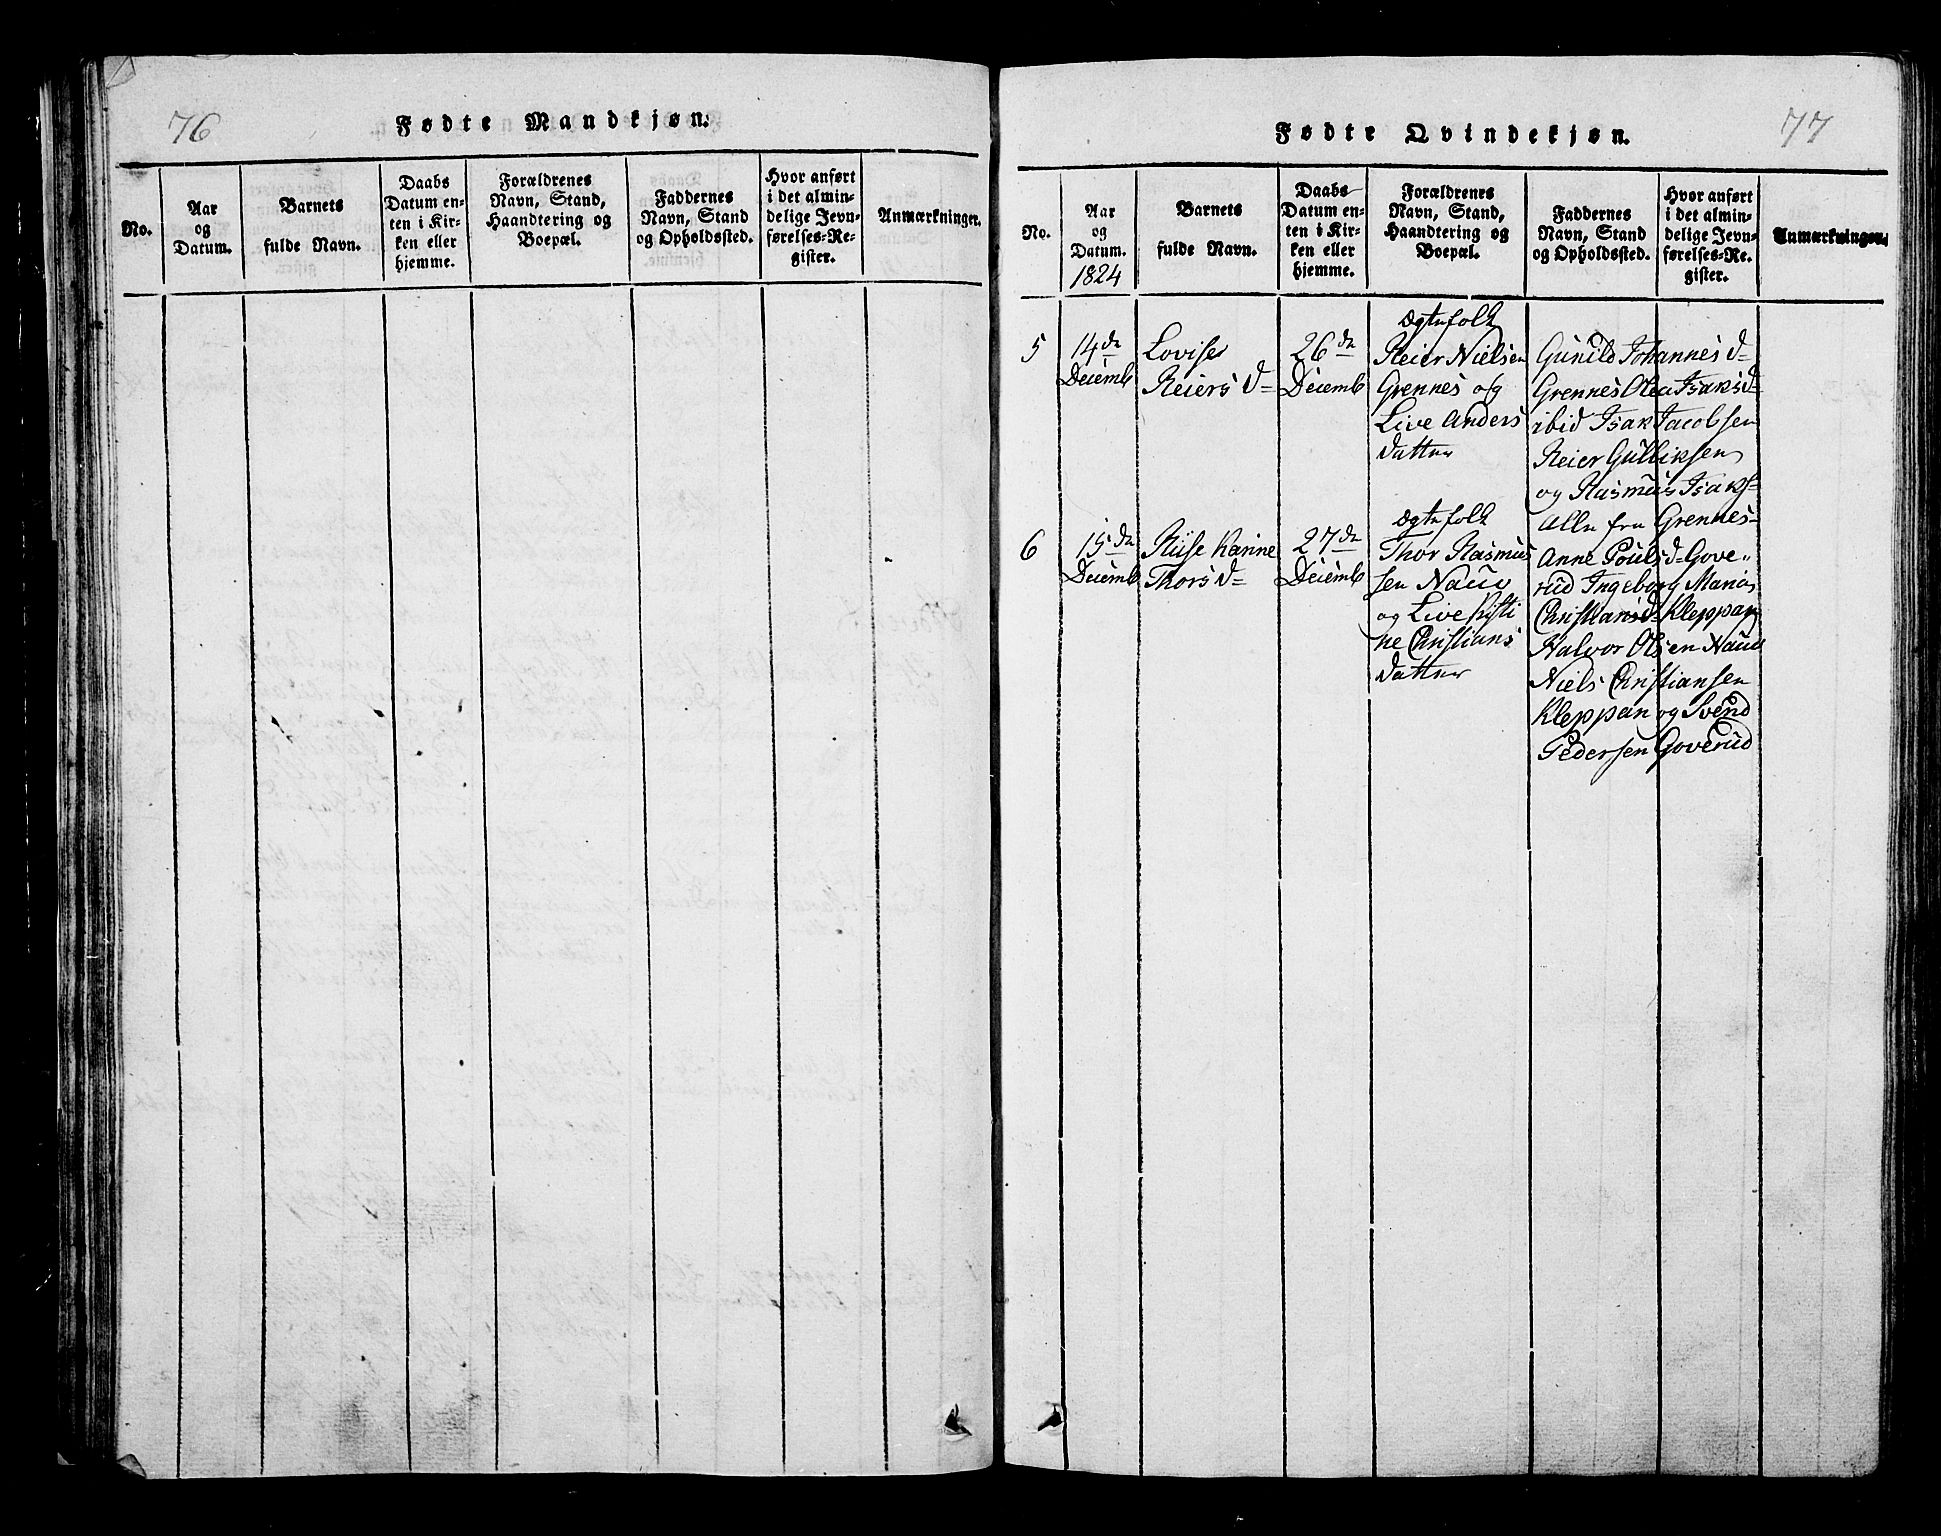 76
Fødte Mandkjøn.
No.
Aar
og
Datum.
Barnets
fulde Navn.
Daabs
Datum en-
ten i Kir-
ken eller
hjemme.
Forældrenes
Navn, Stand,
Haandtering og
Boepæl.
Faddernes
Navn, Stand
og Opholdssted.
Hvor anført
i det almin-
delige Jevn-
førelses-Re-
gister.
Anmærkninger.
77
Fødte Qvindekjøn.
No.
Aar
og
Datum.
1824
Barnets
fulde Navn.
Daabs-
Datum en-
ten i Kir-
ken eller
hjemme.
Forældrenes
Navn, Stand,
Haandtering og
Boepæl.
Faddernes
Navn, Stand
og Opholdssted.
Hvor anført
i det almin-
delige Jevn-
førelses-Re-
gister.
Anmærkninger.
5
14de
Decemb
Lovise
Reiers d=
26de
Decemb
Ægtefolk
Reier Nielsen
Grennes og
Live Anders
datter
Gunild Johannes d=
Grennes Olea Isaks d=
ibid Isak Jacobsen
Reier Gulliksen
og Rasmus Isaks=
alle fra Grennes
6
15de
Decemb
Riise Karine
Thors d=
27de
Decemb
Ægtefolk
Thor Rasmus
sen Naue
og Live Kisti
ne Christians
datter
Anne Pouls d= Gove-
rud Ingeborg Maria
Christians d= Kleppan
Halvor Olsen Naue
Niels Christiansen
Kleppan og Svend
Pedersen Goverud